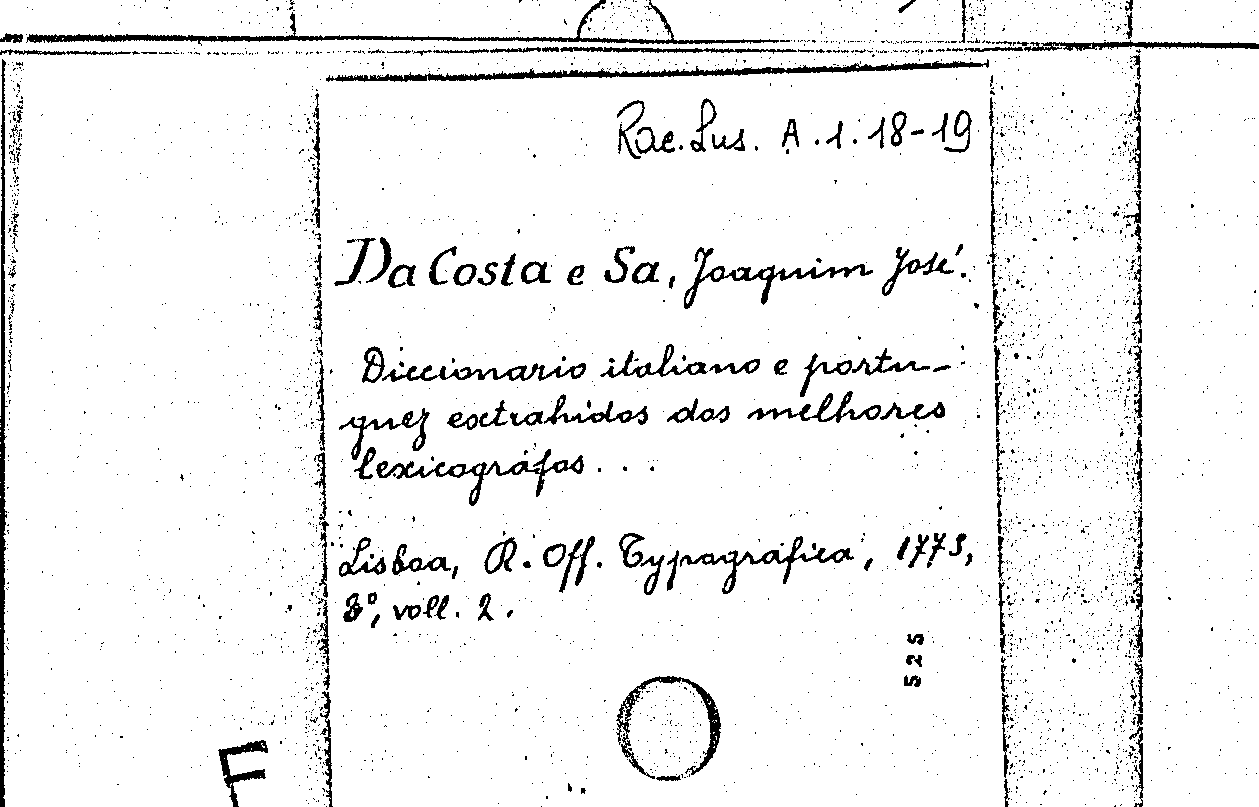 Rac. Lus. A.1.18-19
Da Costa e Sa, Joaquim José.
Diccionario italiano e portu-
guez extrahidos dos melhores
lexicográfos . . .
Lisboa, R. Off. Typográfica, 1773,
8°, voll. 2.
525
F